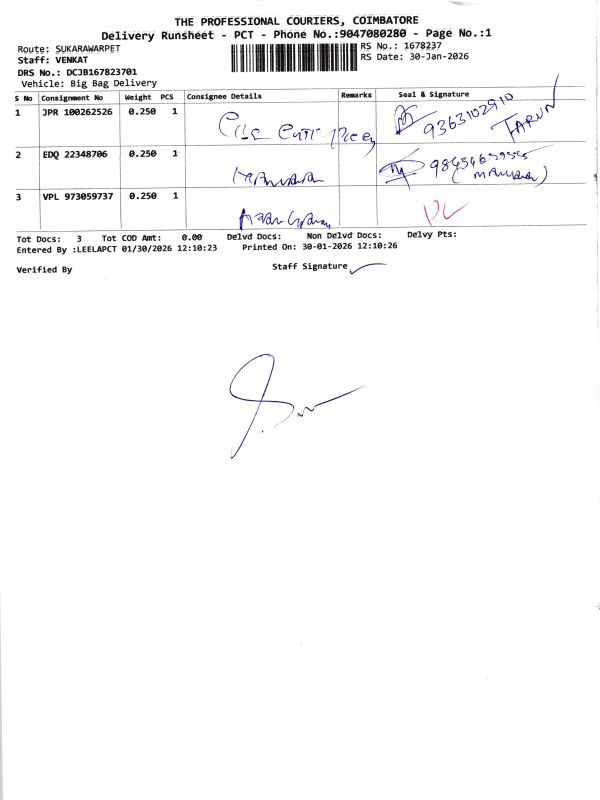 THE PROFESSIONAL COURIERS, COIMBATORE
Delivery Runsheet - PCT - Phone No.:9047080280 - Page No.:1
Route: SUKARAWARPET
RS No.: 1678237
Staff: VENKAT
RS Date: 30-Jan-2026
DRS No.: DCJB167823701
Vehicle: Big Bag Delivery
S No Consignment No Weight PCS Consignee Details Remarks Seal & Signature
1 JPR 100262526 0.250 1 9363102910 TARUN
2 EDQ 22348706 0.250 1
3 VPL 973059737 0.250 1
Tot Docs: 3 Tot COD Amt: 0.00 Delvd Docs: Non Delvd Docs: Delvy Pts:
Entered By :LEELAPCT 01/30/2026 12:10:23 Printed On: 30-01-2026 12:10:26
Verified By Staff Signature